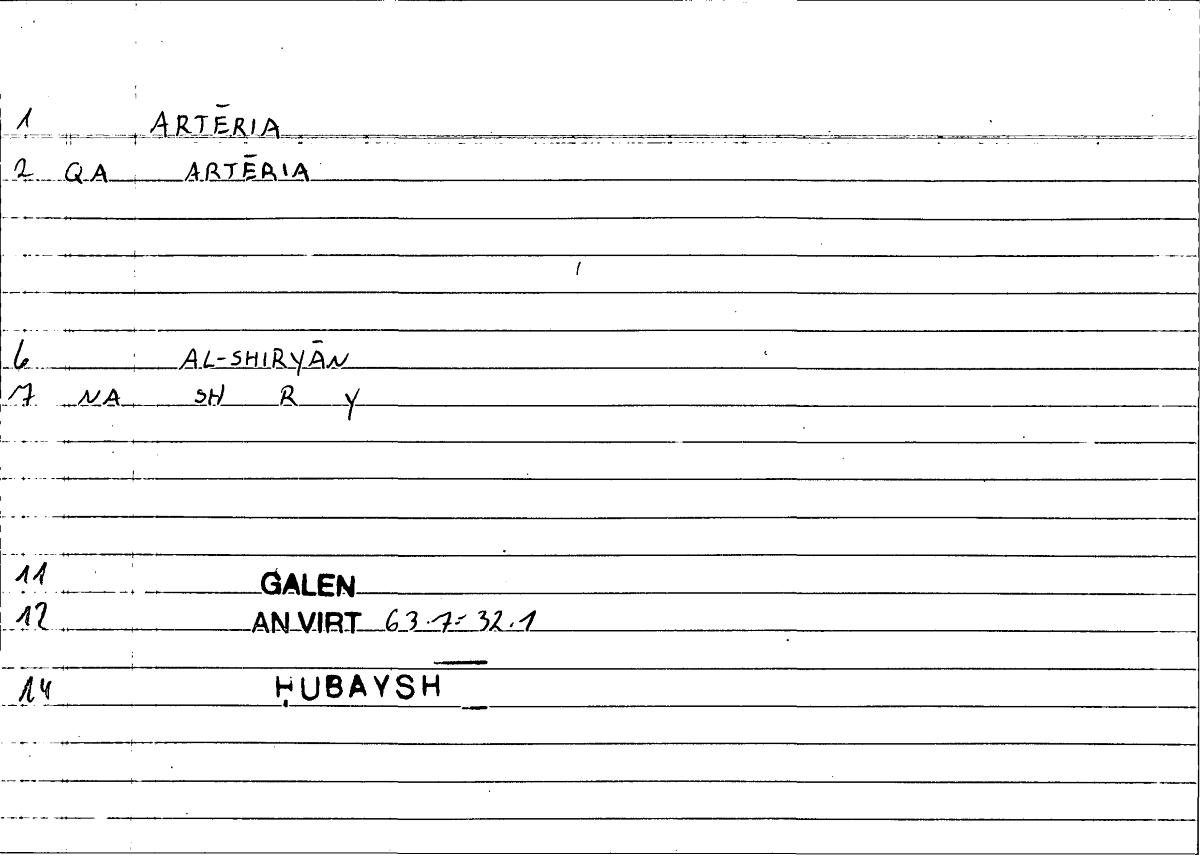 1 ARTĒRIA
2 QA ARTĒRIA
6 AL-SHIRYĀN
7 NA SH R Y
11 GALEN
12 AN VIRT 63.7=32.1
14 ḤUBAYSH